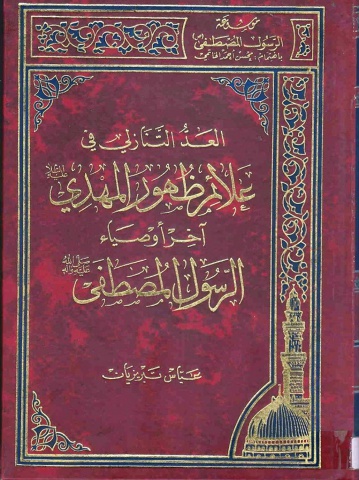 موسوعة
الرسول المصطفى
باهتمام: محسن أحمد الخاتمي
العد التنازلي في
علائم ظهور المهدي عليه السلام
آخر أوصياء
الرسول المصطفى صلى الله عليه وآله
عباس تبريزيان